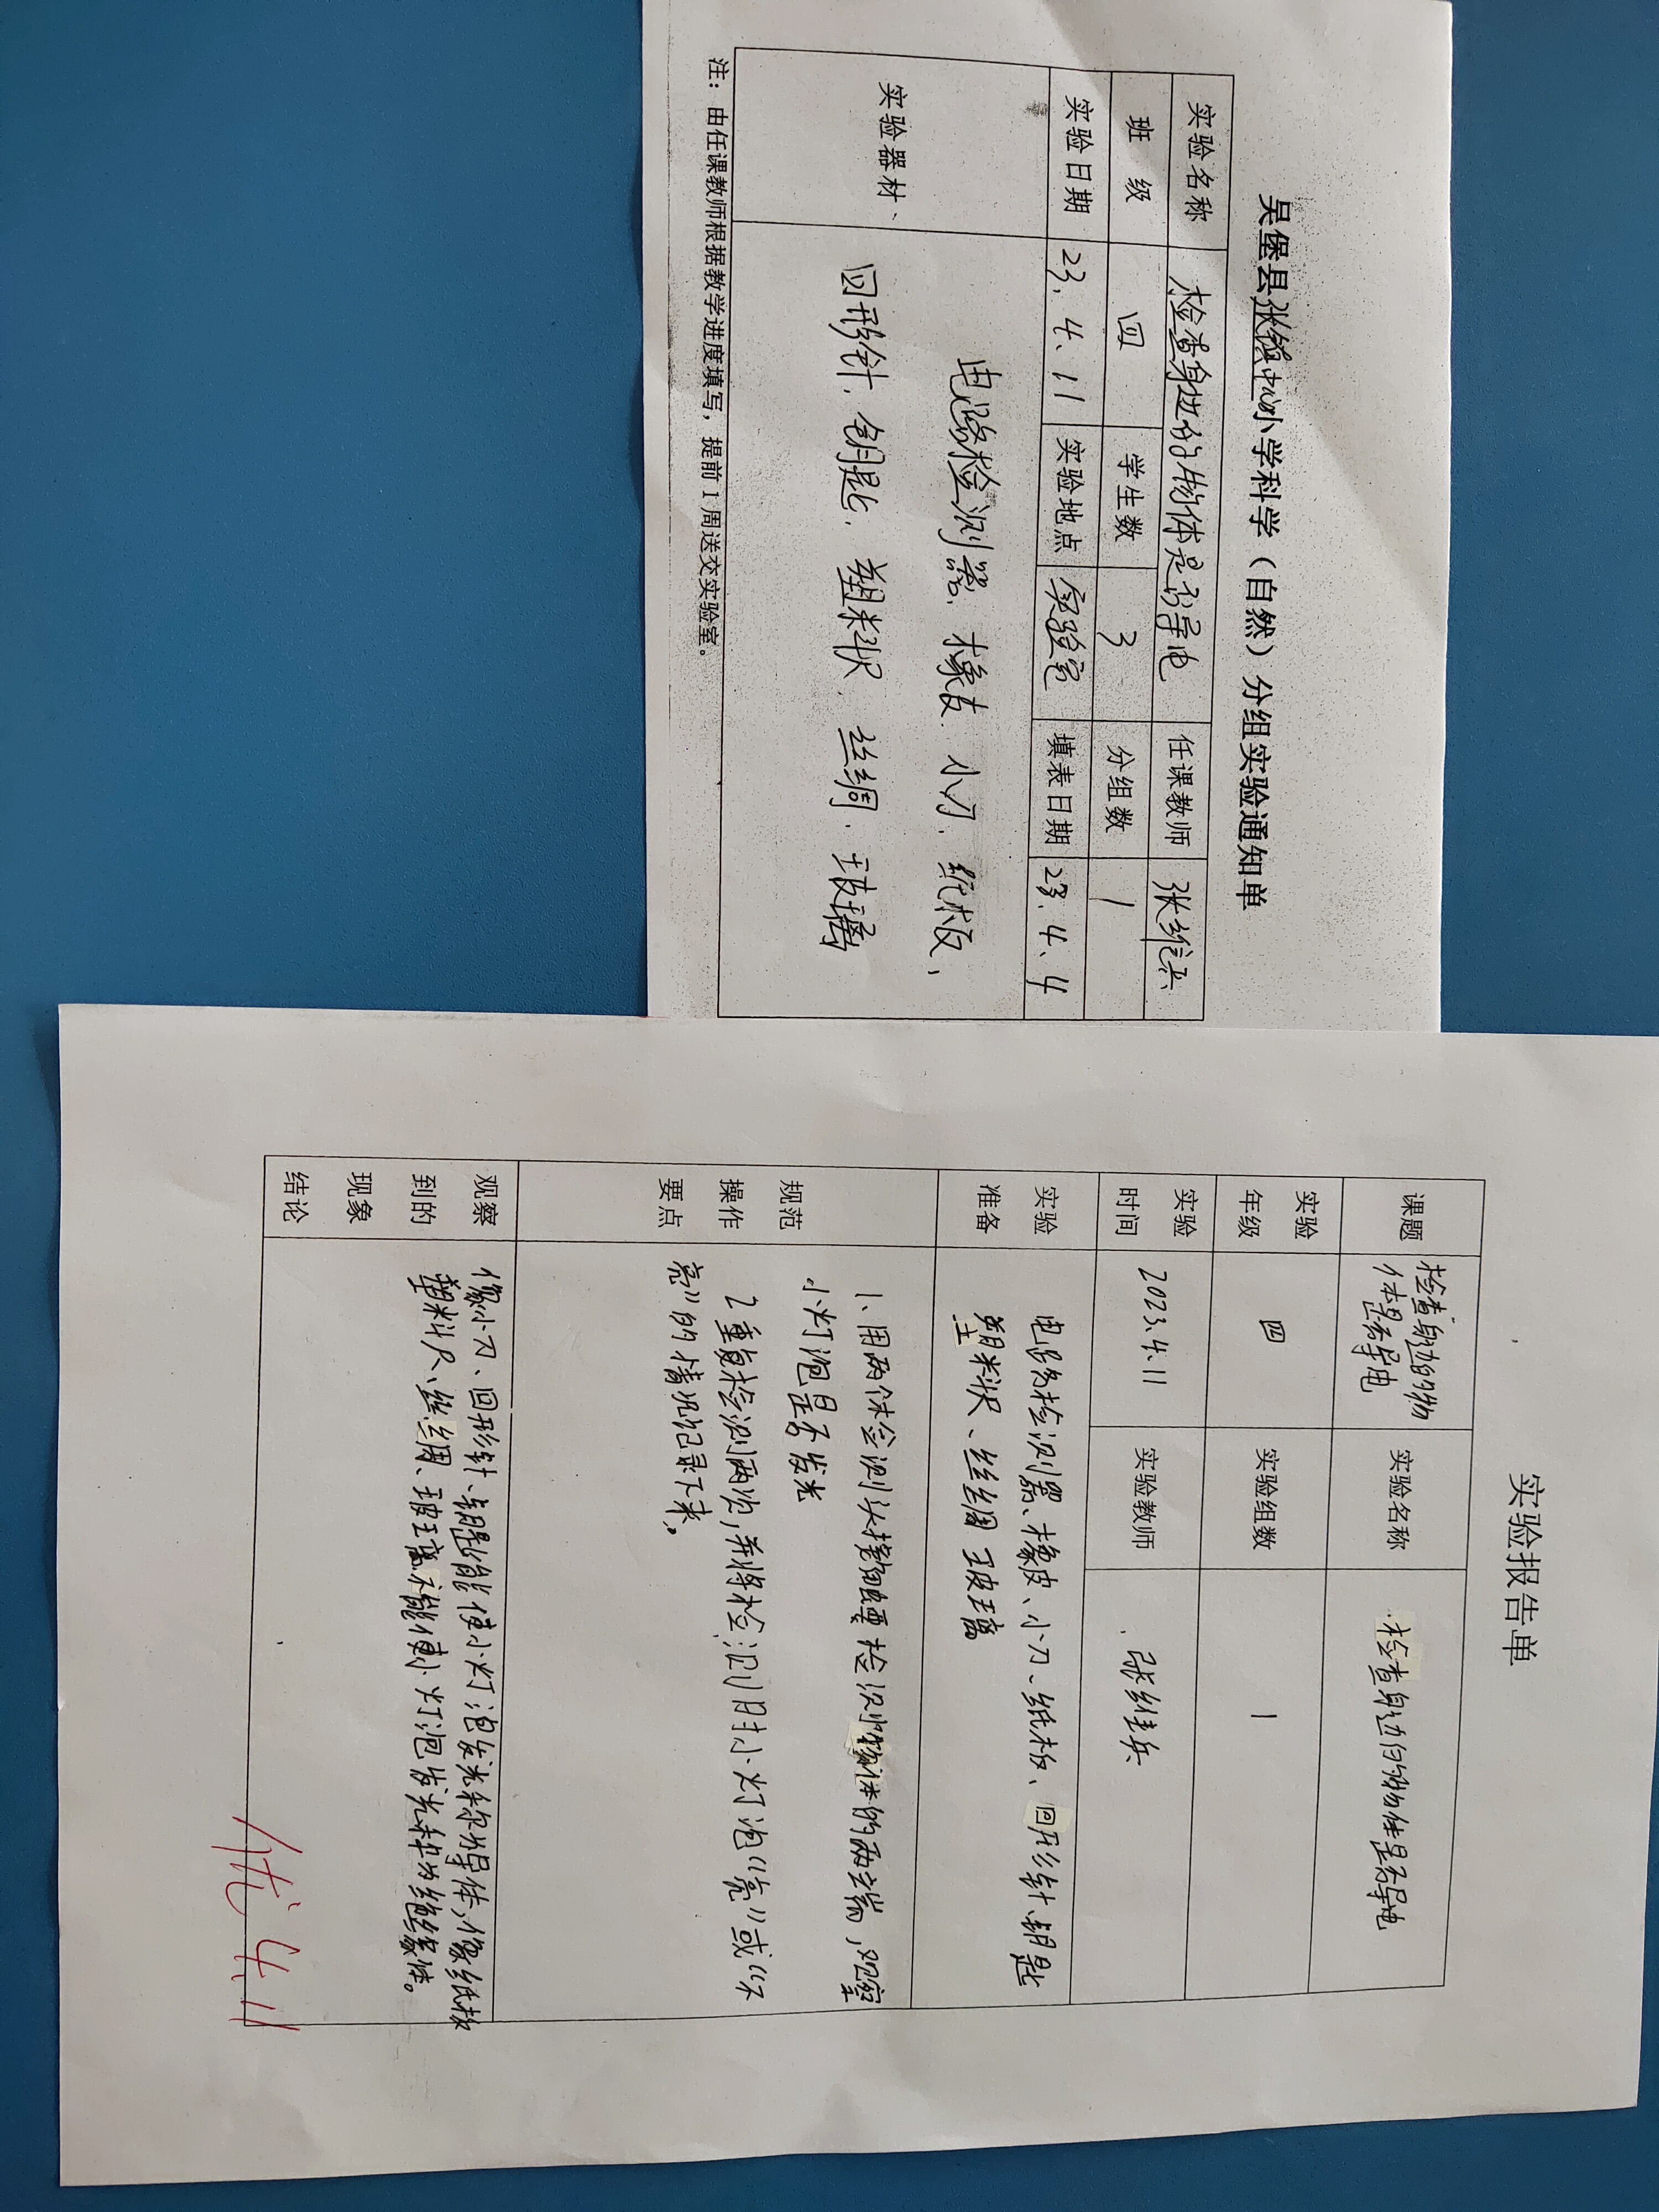 吴堡县张家山镇中心小学科学（自然）分组实验通知单
实验名称 检查身边的物体是否导电 任课教师 张维兵
班 级 四 学生数 3 分组数 1
实验日期 23.4.11 实验地点 实验室 填表日期 23.4.4
实验器材、
电路检测器、橡皮、小刀、纸板、
回形针、钥匙、塑料尺、丝绸、玻璃
注：由任课教师根据教学进度填写，提前1周送交实验室。
实验报告单
课题 检查身边的物体是否导电 实验名称 检查身边的物体是否导电
实验年级 四 实验组数 1
实验时间 2023.4.11 实验教师 张维兵
实验准备
电路检测器、橡皮、小刀、纸板、回形针、钥匙
塑料尺、丝绸 玻璃
规范操作要点
1、用两个检测头接触要检测物体的两端，观察
小灯泡是否发光
2 重复检测两次，并将检测时小灯泡“亮”或“不
亮”的情况记录下来。
观察到的现象结论
像小刀、回形针、钥匙能使小灯泡发光称为导体，像纸板
塑料尺、丝绸、玻璃不能使小灯泡发光称为绝缘体。
优 4.11